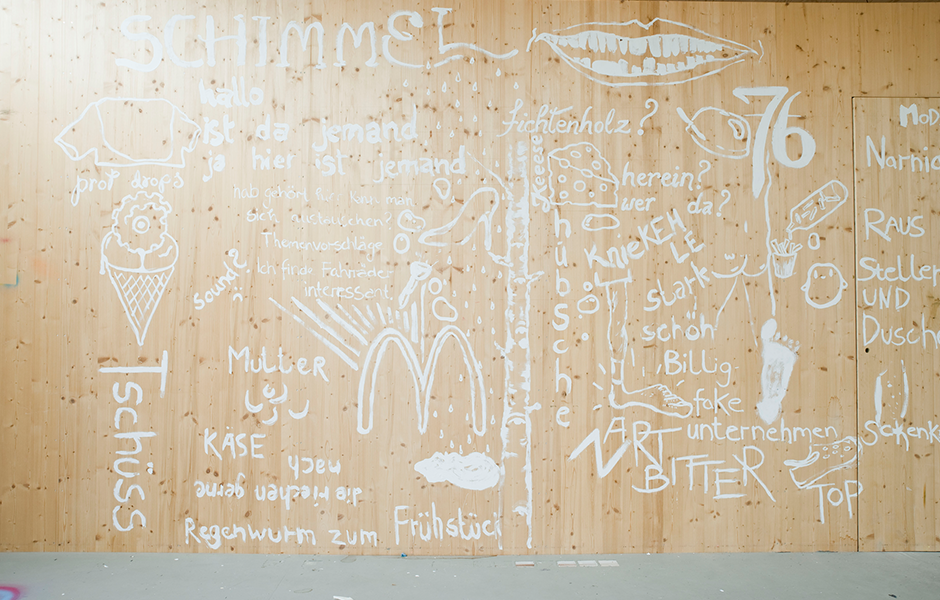 SCHIMMEL
hallo
ist da jemand
ja hier ist jemand
prof drops
hab gehört hier kann man
sich austauschen?
Themenvorschläge
Ich finde Fahrräder
interessant.
sound?
Mutter
Tschüss
KÄSE
nach
die riechen gerne
Regenwurm zum Frühstück
fichtenholz?
76
herein?
wer da?
hübsche
KnieKEHLE
stark
schön
Billig
fake
unternehmen
ZART
BITTER
TOP
Narnia
RAUS
Steller
UND
Dusch